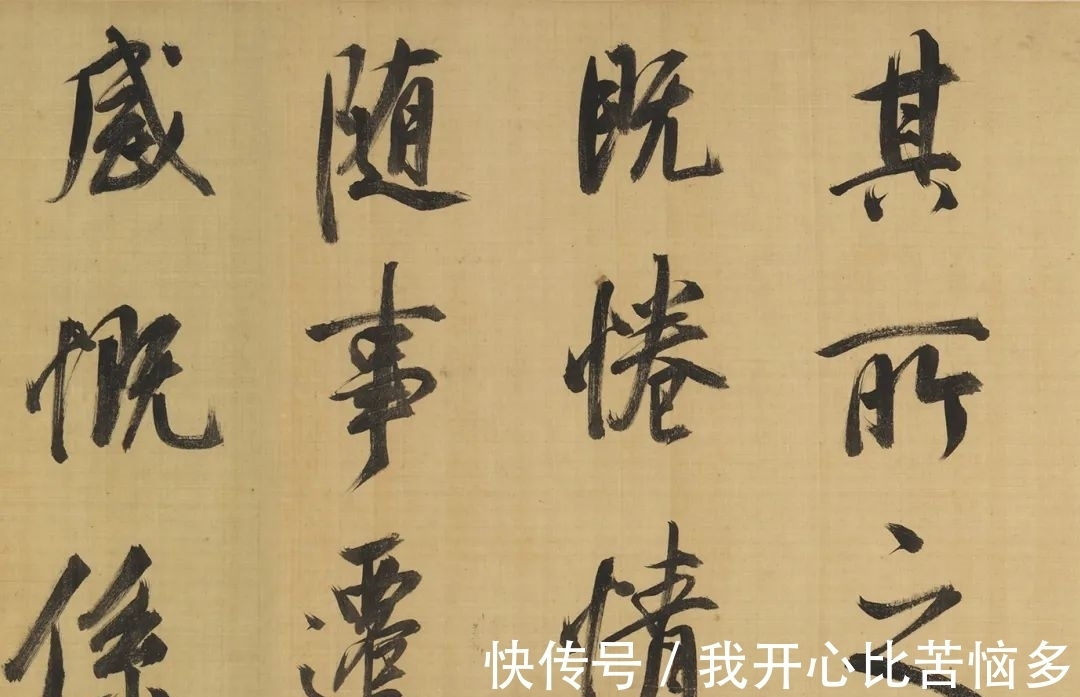 其所之
既惓情
随事遷
感慨係
快传号/我开心比苦恼多